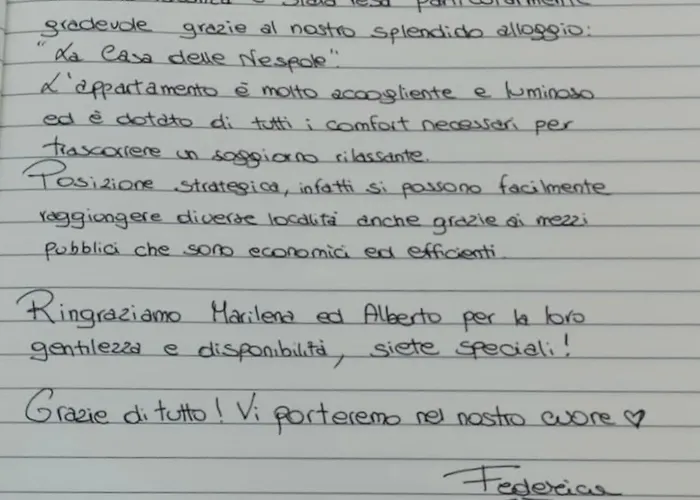 è stata resa particolarmente
gradevole grazie al nostro splendido alloggio:
"La Casa delle Nespole".
L'appartamento è molto accogliente e luminoso
ed è dotato di tutti i comfort necessari per
trascorrere un soggiorno rilassante.
Posizione strategica, infatti si possono facilmente
raggiungere diverse località anche grazie ai mezzi
pubblici che sono economici ed efficienti.
Ringraziamo Marilena ed Alberto per la loro
gentilezza e disponibilità, siete speciali!
Grazie di tutto! Vi porteremo nel nostro cuore ♡
Federica